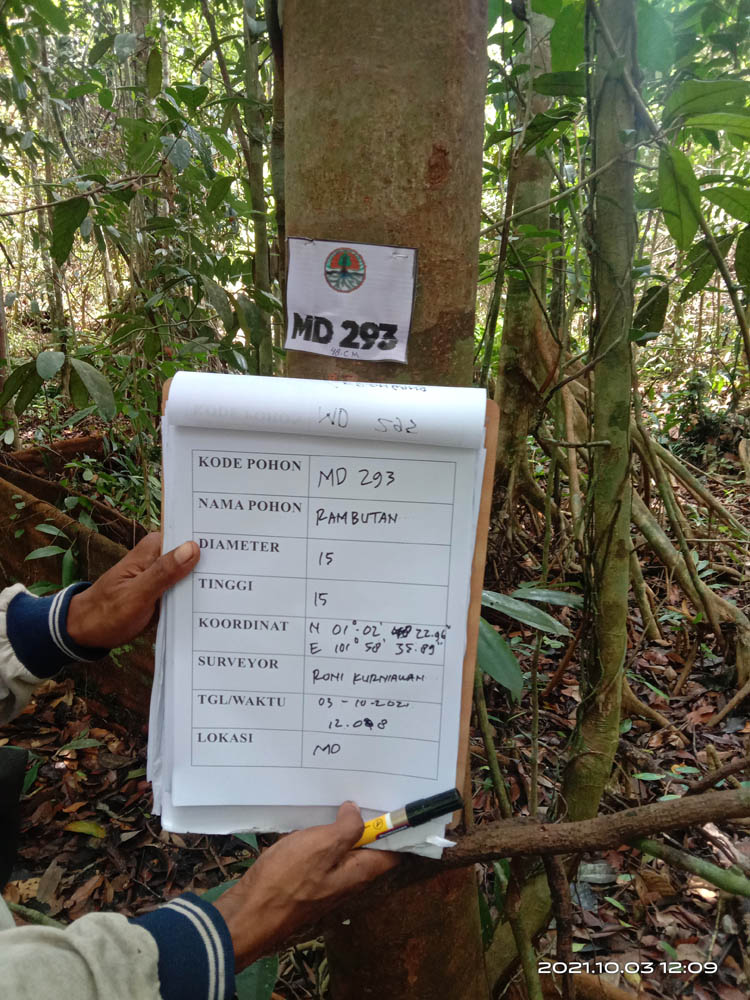 MD 293
48 CM
KODE POHON MD 293
NAMA POHON RAMBUTAN
DIAMETER 15
TINGGI 15
KOORDINAT N 01° 02' 22.96"
E 101° 58' 35.89"
SURVEYOR RONI KURNIAWAN
TGL/WAKTU 03-10-2021
12.08
LOKASI MD
2021.10.03 12:09